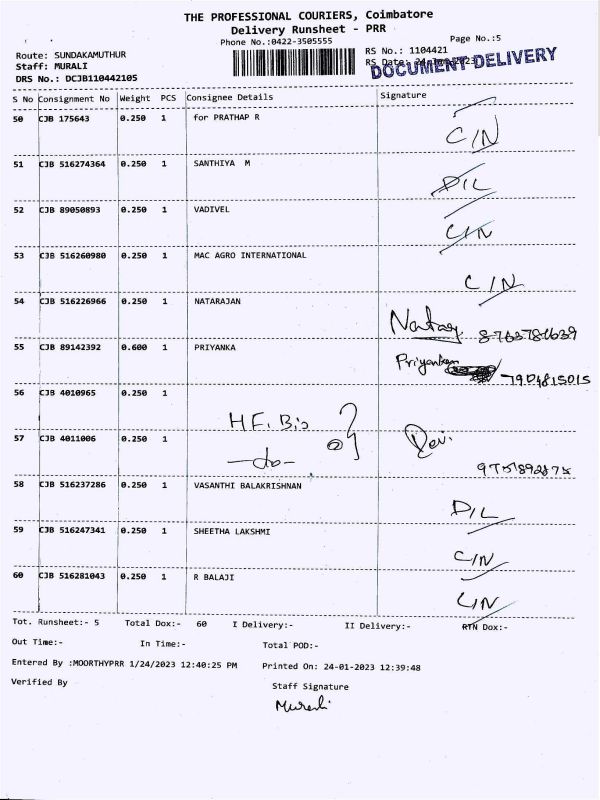 THE PROFESSIONAL COURIERS, Coimbatore
Delivery Runsheet - PRR
Phone No.:0422-3505555
Page No.:5
Route: SUNDAKAMUTHUR
RS No.: 1104421
Staff: MURALI
RS Date:
DOCUMENT DELIVERY
DRS No.: DCJB110442105
S No Consignment No Weight PCS Consignee Details Signature
50 CJB 175643 0.250 1 for PRATHAP R C/N
51 CJB 516274364 0.250 1 SANTHIYA M D/L
52 CJB 89050893 0.250 1 VADIVEL C/N
53 CJB 516260980 0.250 1 MAC AGRO INTERNATIONAL C/N
54 CJB 516226966 0.250 1 NATARAJAN
55 CJB 89142392 0.600 1 PRIYANKA 7904815015
56 CJB 4010965 0.250 1
57 CJB 4011006 0.250 1 -do-
58 CJB 516237286 0.250 1 VASANTHI BALAKRISHNAN D/L
59 CJB 516247341 0.250 1 SHEETHA LAKSHMI C/N
60 CJB 516281043 0.250 1 R BALAJI C/N
Tot. Runsheet:- 5 Total Dox:- 60 I Delivery:- II Delivery:- RTN Dox:-
Out Time:- In Time:- Total POD:-
Entered By :MOORTHYPRR 1/24/2023 12:40:25 PM Printed On: 24-01-2023 12:39:48
Verified By Staff Signature
Murali